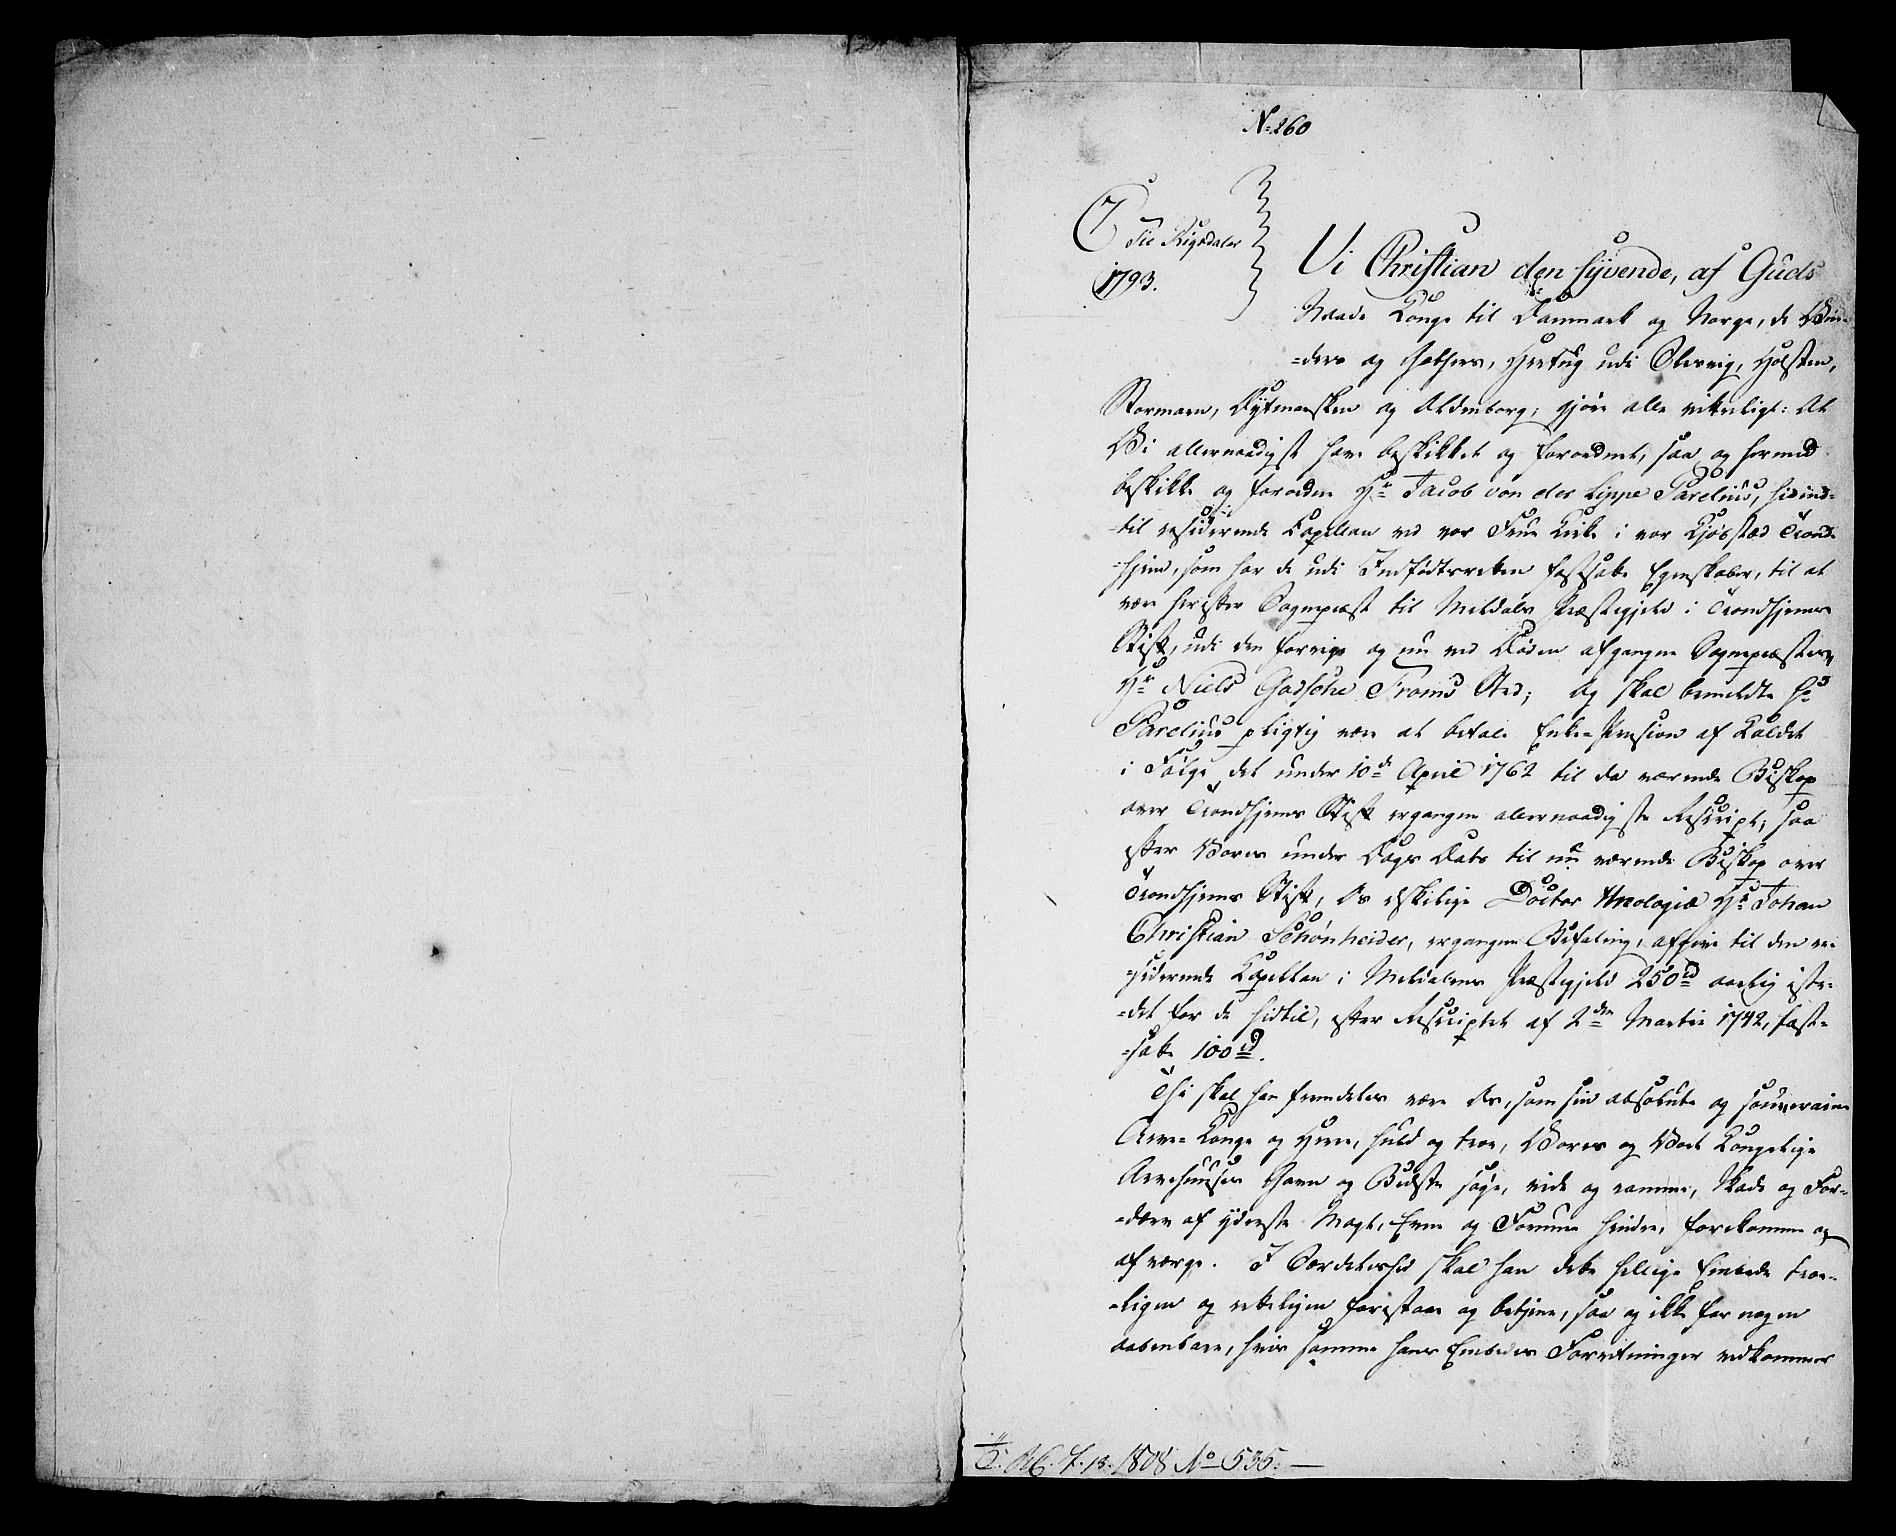 No 260
C 7
Tie Rigsdaler
1793.
Vi Christian den Syvende, af Guds
Naade Konge til Danmark og Norge, de Ven-
-ders og Gothers, Hertug udi Slesvig, Holsten,
Stormarn, Dytmersken og Oldenborg; gjøre alle vitterligt: At
Vi allernaadigst have beskikket og forordnet, saa og hermed
beskikke og forordne Hr Jacob von der Lippe Parelius, hidind-
-til residerende Capellan ved vor Frue Kirke i vor Kjøbstæd Trond-
-hjem, som har de udi Indfødtsretten fastsatte Egenskaber, til at
være herefter Sognepræst til Meldals Præstegjeld i Trondhjems
Stift, udi den forrige og nu ved Døden afgangne Sognepræstes,
Hr Niels Godsche Froms Sted; og skal bemeldte Hr
Parelius pligtig være at betale Enke-Pension af Kaldet
i Følge det under 10de April 1762 til da værende Biskop
over Trondhjems Stift ergangne allernaadigste Rescript, saa
efter Vores under Dags Dato til nu værende Biskop over
Trondhjems Stift, Os elskelige Doctor theologiæ Hr Johan
Christian Schønheider, ergangne Befaling, afgive til den re-
-siderende Capellan i Meldalens Præstegjeld 250 rd aarlig iste-
-det for de hidtil, efter Rescriptet af 2den Martii 1742, fast-
-satte 100 rd.
Thi skal han fremdeles være Os, som sin absolute og souveraine
Arve-Konge og Herre, huld og troe, Vores og Vort Kongelige
Arvehuses Gavn og Bedste søge, vide og ramme, Skade og For-
-dærv af yderste Magt, Evne og Formue hindre, forekomme og
afværge. I Særdeleshed skal han dette hellige Embede troe-
-ligen og retteligen forestaae og betjene, saa og ikke for nogen
aabenbare, hvis samme hans Embedes Forretninger vedkommer
1808 No 535.